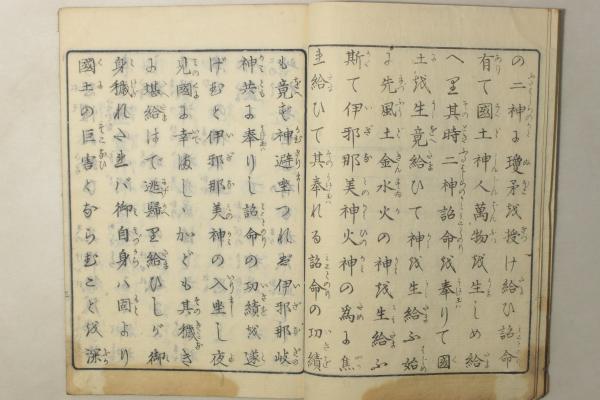 の二神に瓊矛を授け給ひ詔命
有て國土神人萬物を生しめ給
へり其時二神詔命を奉りて國
土を生竟給ひて神を生給ふ始
に先風土金水火の神を生給ふ
斯て伊邪那美神火神の為に焦
坐給ひて其奉れる詔命の功績
も竟ず神避坐つれば伊邪那岐
神共に奉りし詔命の功績を遂
げむと伊邪那美神の入坐し夜
見國に幸ましゝかども其穢き
に堪給はで逃歸り給ひしが御
身穢れたれバ御自身ハ固より
國土の巨害とならむことを深